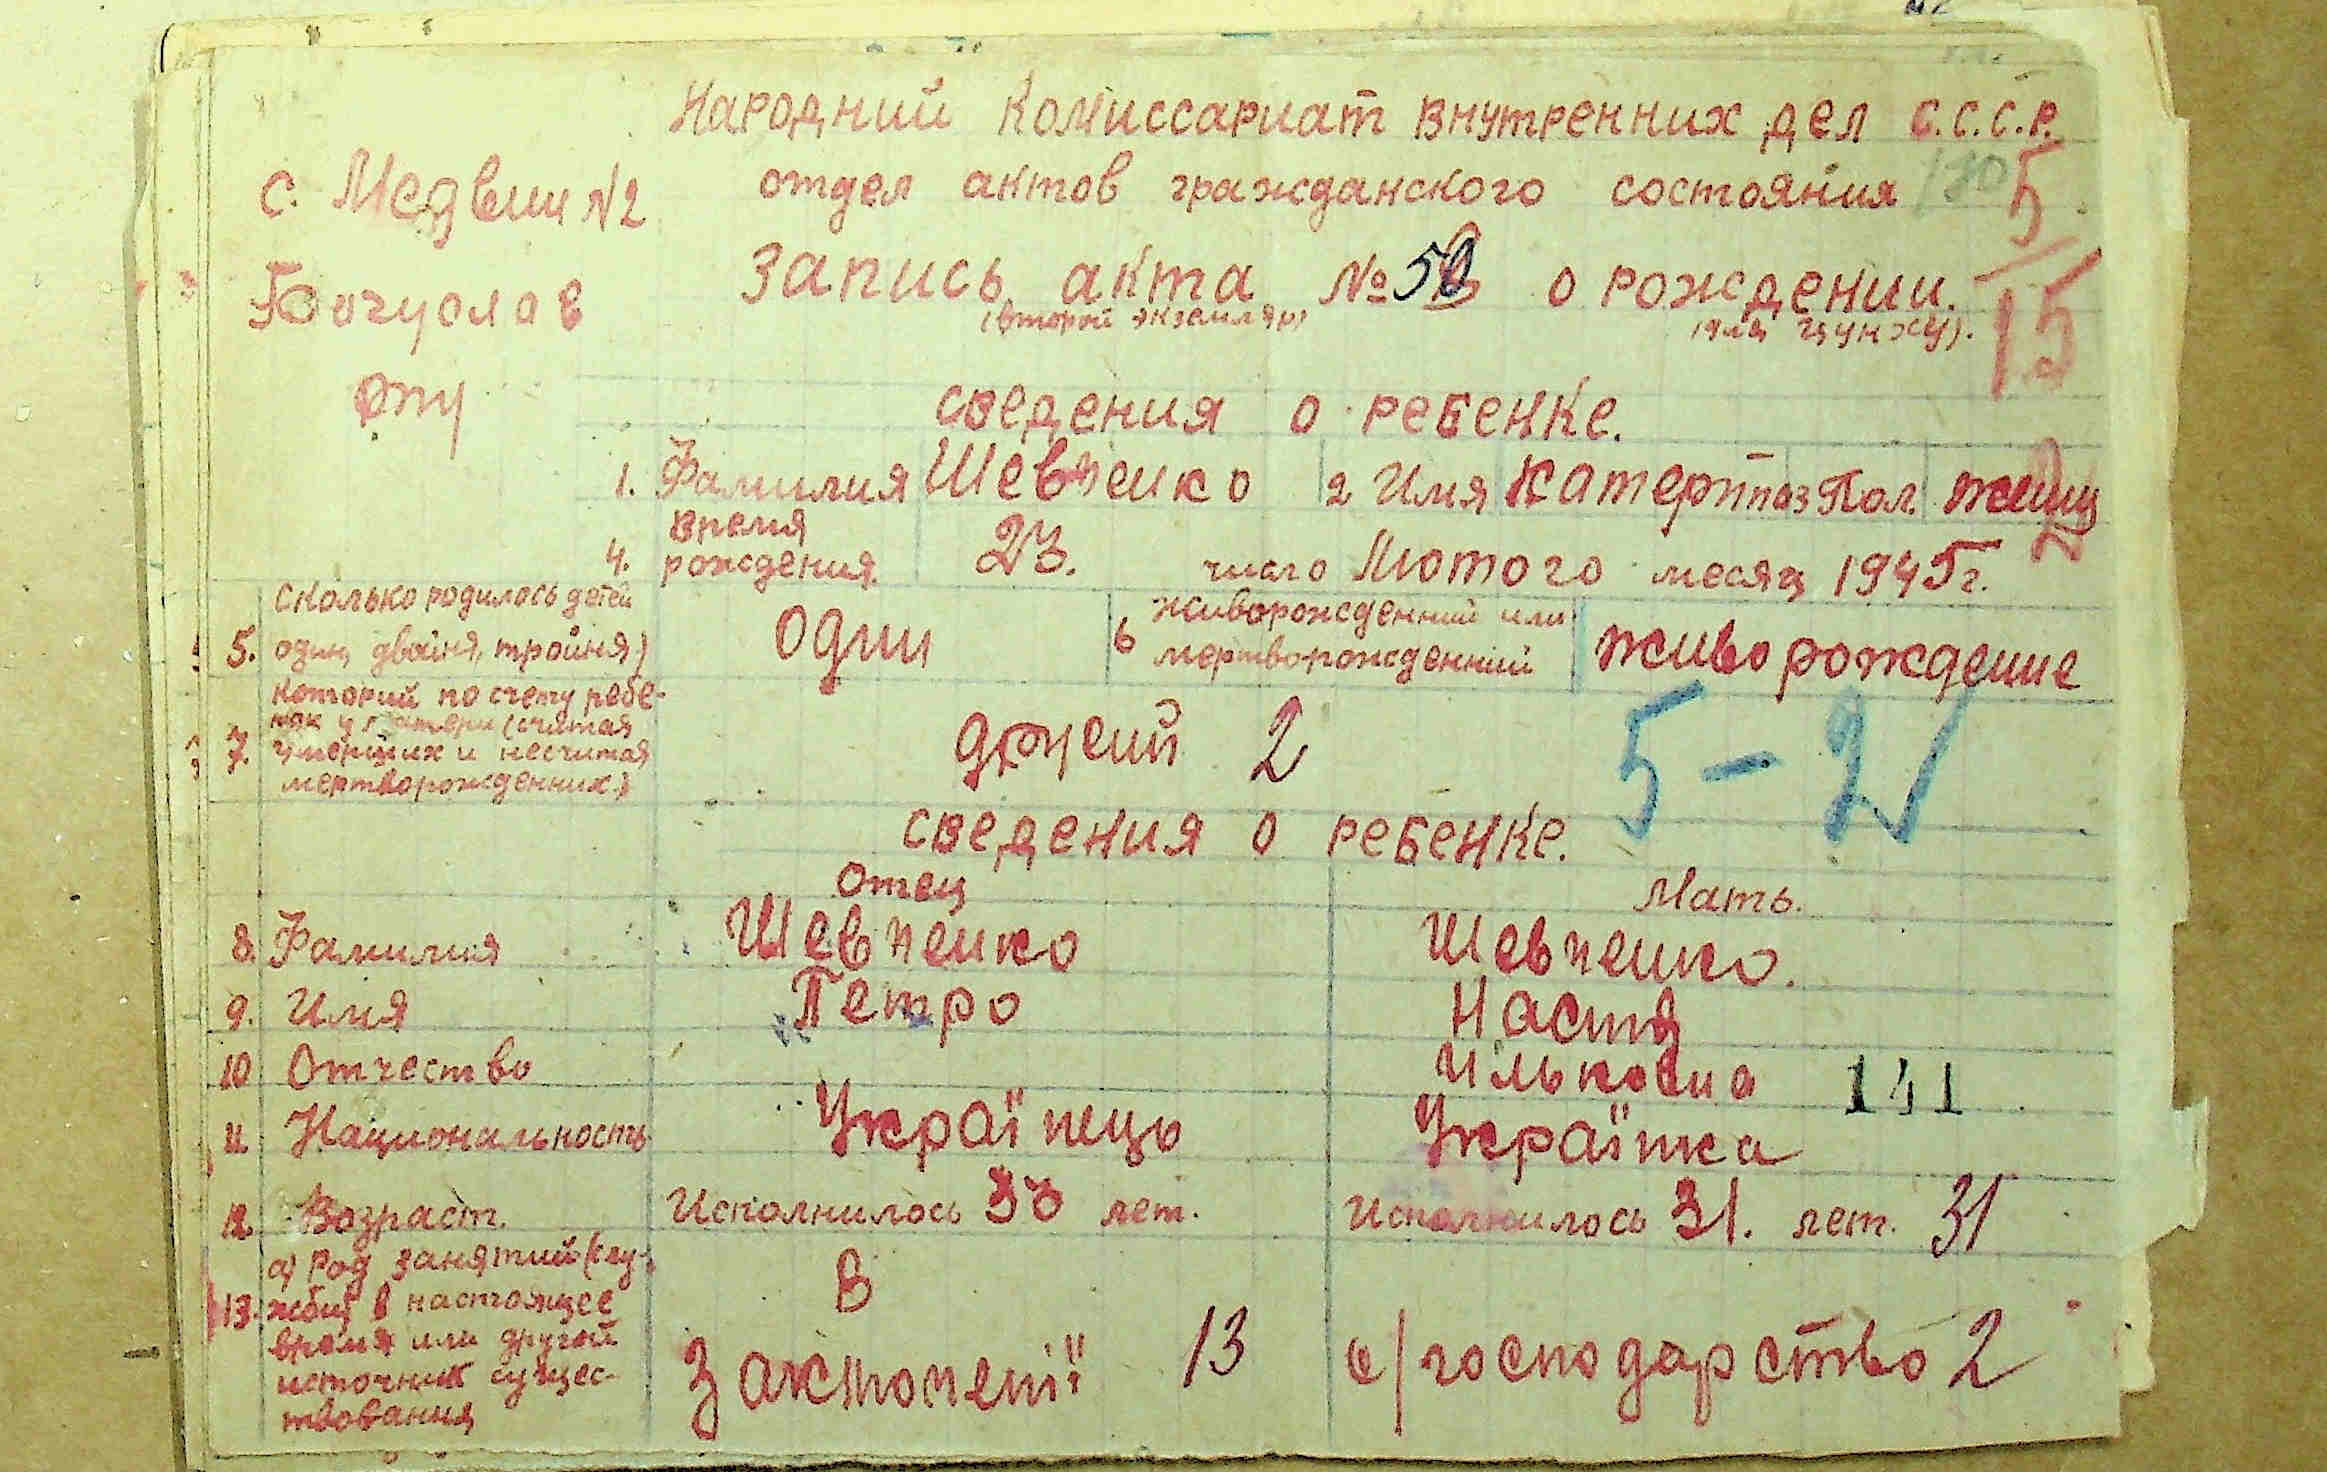 Народний Комиссариат внутренних дел С.С.С.Р.
с. Медвин №2
отдел актов гражданского состояния
5/15
Запись акта № 50 о рождении.
(второй экземляр) (для цунху).
сведения о ребенке.
1. Фамилия Шевченко 2 Имя Катерина 3 Пол женщ
4. время рождения 23. число Лютого месяц 1945г.
5. сколько родилось детей
один, двойня, тройня)
один
6 живорожденний или
мертворожденний
живорождение
7. которий по счету ребе-
нок у матери (считая
умерших и несчитая
мертворожденних)
другий 2
5-2
сведения о ребенке.
Отец Мать.
8. Фамилия Шевченко Шевченко.
9. Имя Петро Настя
10 Отчество Ильковна 141
11 Национальность Українець Українка
12 Возраст. Исполнилось 33 лет. Исполнилось 31. лет. 31
13. а) Род занятий (слу-
жбы в настоящее
время или другой
источник сущес-
твования
В
13 г/господарство 2